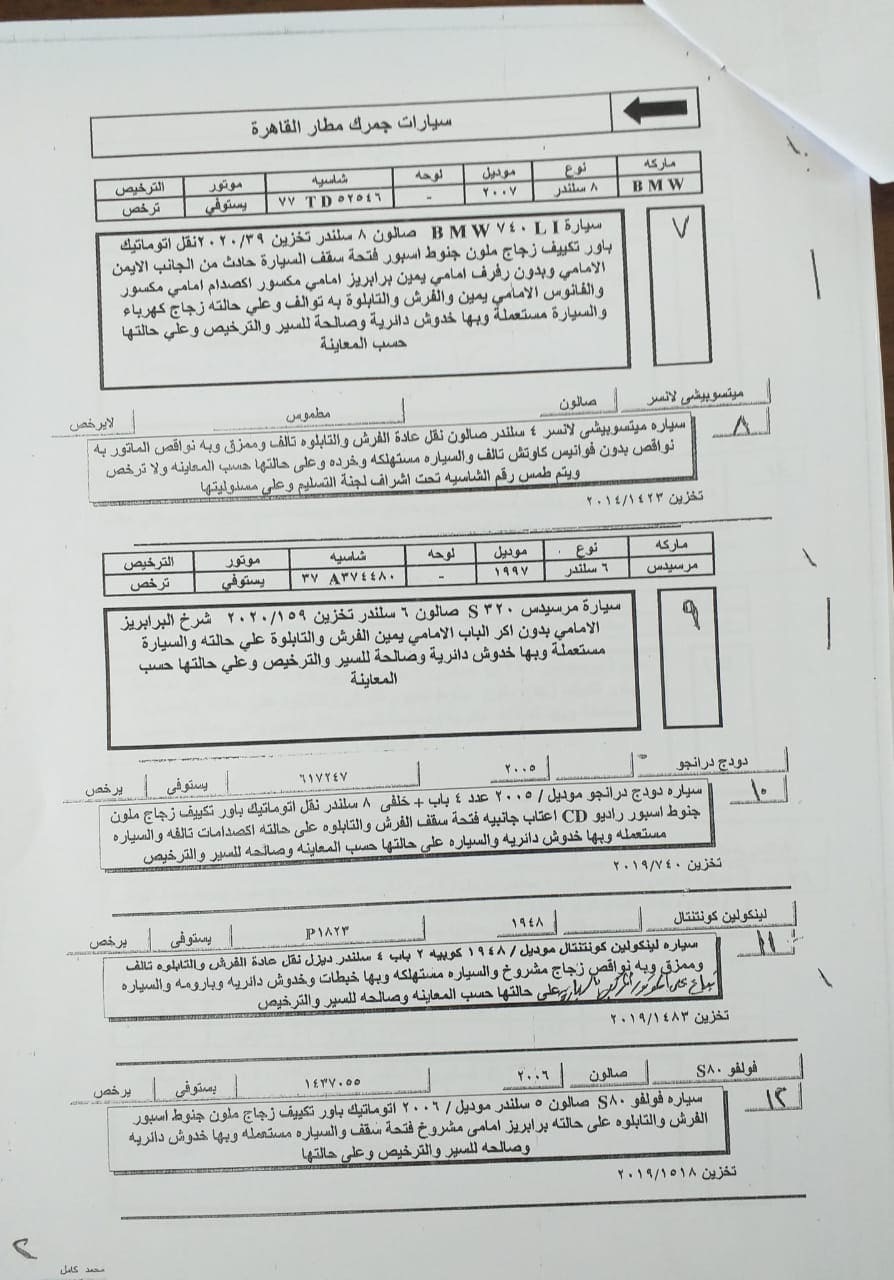 سيارات جمرك مطار القاهرة
ماركه نوع موديل لوحه شاسيه موتور الترخيص
BMW ٨ سلندر ٢٠٠٧ - ٧٧ TD ٥٢٥٤٦ يستوفي ترخص
٧
سيارة BMW ٧٤٠ LI صالون ٨ سلندر تخزين ٢٠٢٠/٣٩ نقل اتوماتيك
باور تكييف زجاج ملون جنوط اسبور فتحة سقف السيارة حادث من الجانب الايمن
الامامي وبدون رفرف امامي يمين برابريز امامي مكسور اكصدام امامي مكسور
والفانوس الامامي يمين والفرش والتابلوة به توالف وعلي حالته زجاج كهرباء
والسيارة مستعملة وبها خدوش دائرية وصالحة للسير والترخيص وعلي حالتها
حسب المعاينة
ميتسوبيشى لانسر صالون مطموس لايرخص
٨
سياره ميتسوبيشى لانسر ٤ سلندر صالون نقل عادة الفرش والتابلوه تالف وممزق وبه نواقص الماتور به
نواقص بدون فوانيس كاوتش تالف والسياره مستهلكه وخرده وعلى حالتها حسب المعاينه ولا ترخص
ويتم طمس رقم الشاسيه تحت اشراف لجنة التسليم وعلي مسئوليتها
تخزين ٢٠١٤/١٤٢٣
ماركه نوع موديل لوحه شاسيه موتور الترخيص
مرسيدس ٦ سلندر ١٩٩٧ - ٣٧ A٣٧٤٤٨٠ يستوفي ترخص
٩
سيارة مرسيدس S ٣٢٠ صالون ٦ سلندر تخزين ٢٠٢٠/١٥٩ شرخ البرابريز
الامامي بدون اكر الباب الامامي يمين الفرش والتابلوة علي حالته والسيارة
مستعملة وبها خدوش دائرية وصالحة للسير والترخيص وعلي حالتها حسب
المعاينة
دودج درانجو ٢٠٠٥ ٦١٧٢٤٧ يستوفى يرخص
١٠
سياره دودج درانجو موديل / ٢٠٠٥ عدد ٤ باب + خلفى ٨ سلندر نقل اتوماتيك باور تكييف زجاج ملون
جنوط اسبور راديو CD اعتاب جانبيه فتحة سقف الفرش والتابلوه على حالته اكصدامات تالفه والسياره
مستعمله وبها خدوش دائريه والسياره على حالتها حسب المعاينه وصالحه للسير والترخيص
تخزين ٢٠١٩/٧٤٠
لينكولين كونتنتال ١٩٤٨ P١٨٢٣ يستوفى يرخص
١١
سياره لينكولين كونتنتال موديل / ١٩٤٨ كوبيه ٢ باب ٤ سلندر ديزل نقل عادة الفرش والتابلوه تالف
وممزق وبه نواقص زجاج مشروخ والسياره مستهلكه وبها خبطات وخدوش دائريه وبارومه والسياره
على حالتها حسب المعاينه وصالحه للسير والترخيص
تخزين ٢٠١٩/١٤٨٣
فولفو S٨٠ صالون ٢٠٠٦ ١٤٣٧٠٥٥ يستوفى يرخص
١٢
سياره فولفو S٨٠ صالون ٥ سلندر موديل / ٢٠٠٦ اتوماتيك باور تكييف زجاج ملون جنوط اسبور
الفرش والتابلوه على حالته برابريز امامى مشروخ فتحة سقف والسياره مستعمله وبها خدوش دائريه
وصالحه للسير والترخيص وعلى حالتها
تخزين ٢٠١٩/١٥١٨
٢
محمد كامل